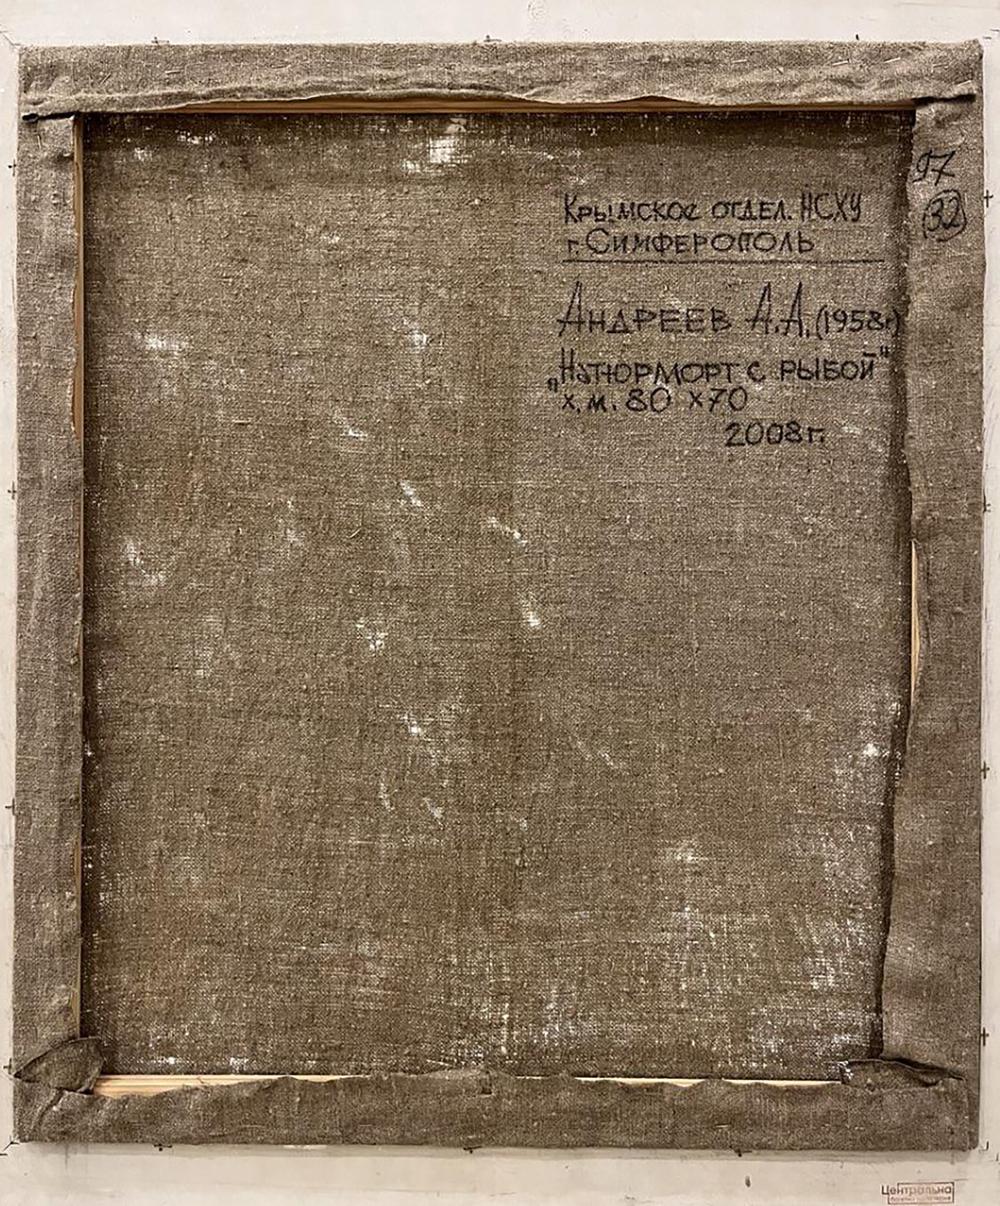 97
(32)
Крымское отдел. НСХУ
г. Симферополь
Андреев А.А. (1958г)
"Натюрморт с рыбой"
х.м. 80 х 70
2008г.
Центральна